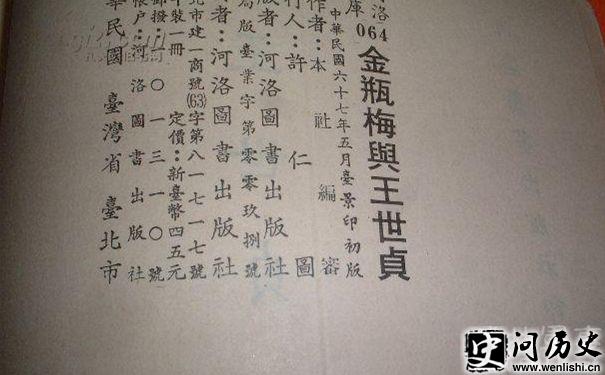 洛
庫 064
金瓶梅與王世貞
中華民國六十七年五月臺景印初版
作者：本社編審
行人：許仁圖
版者：河洛圖書出版社
局版臺業字第零零玖捌號
者：河洛圖書出版社
北市建一商號(63)字第八一七一一七號
裝一冊 定價：新臺幣四五元
郵撥：〇一三一一〇號
帳戶：河洛圖書出版社
華民國 臺灣省 臺北市
史 问历史
www.wenlishi.cn